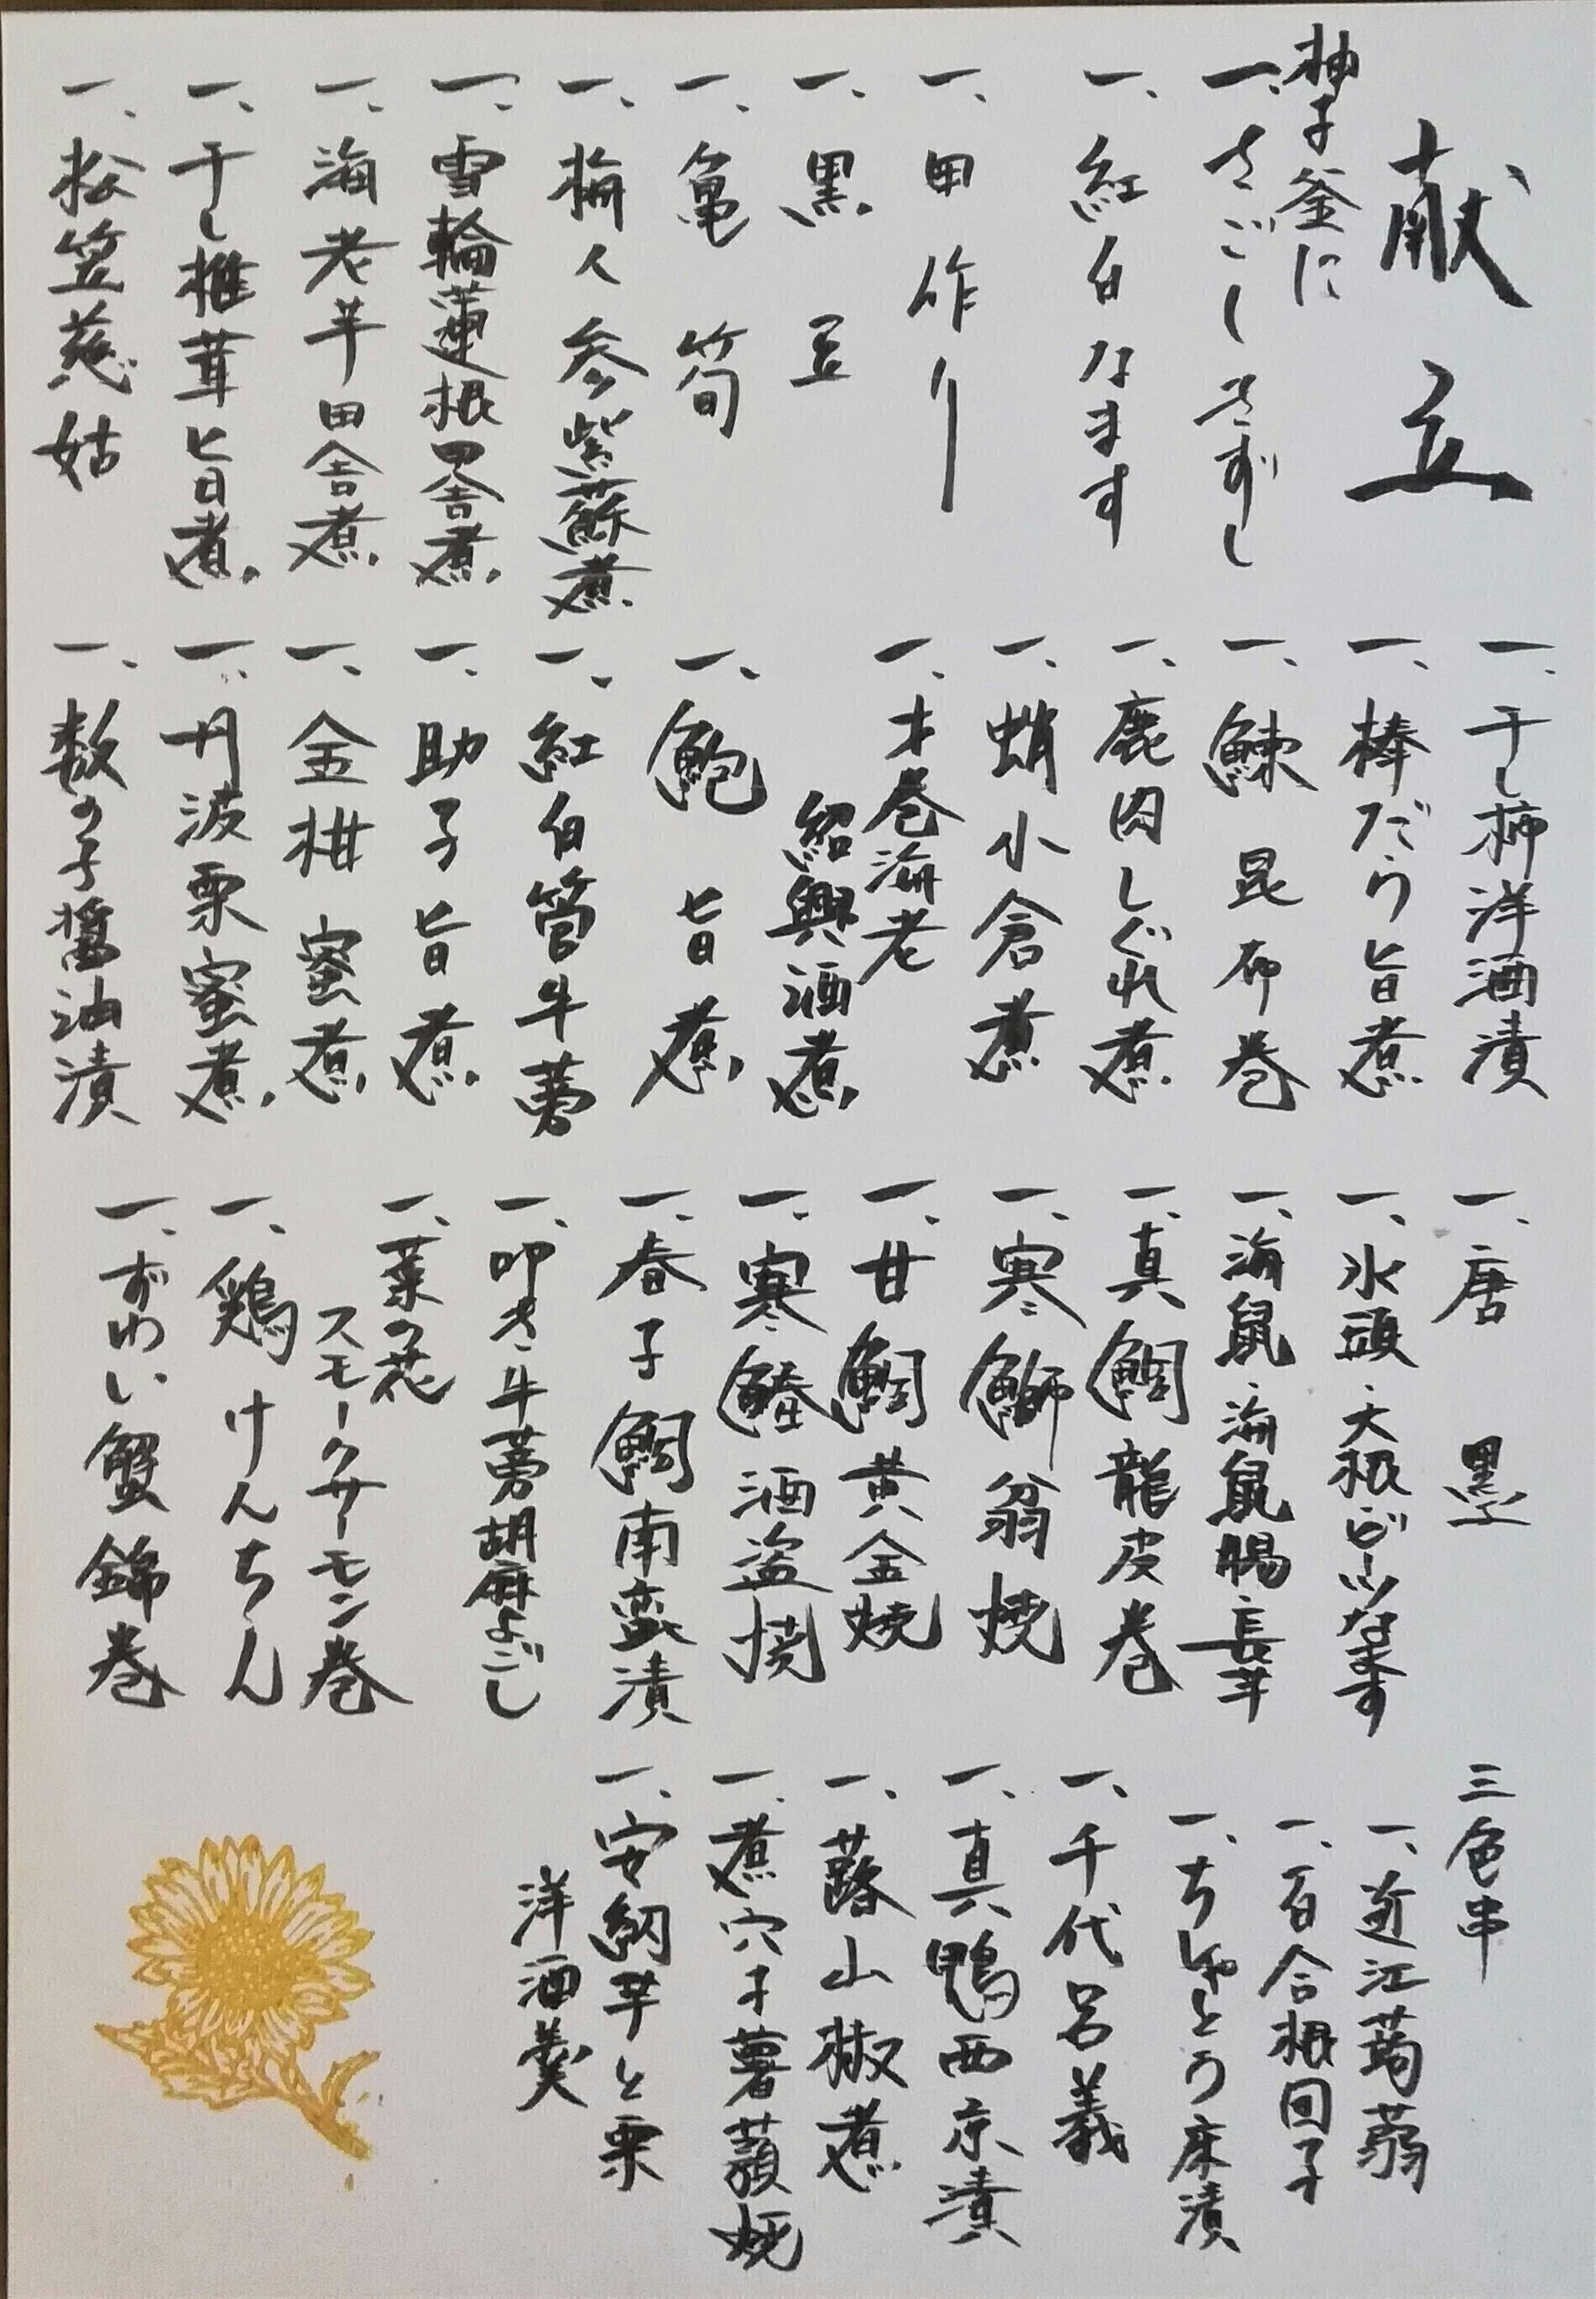 献立
柚子釜に
一、さごしきずし
一、紅白なます
一、田作り
一、黒豆
一、亀筍
一、梅人参紫蘇煮
一、雪輪蓮根田舎煮
一、海老芋田舎煮
一、干し椎茸旨煮
一、松笠慈姑
一、干し柿洋酒漬
一、棒だら旨煮
一、鰊昆布巻
一、鹿肉しぐれ煮
一、蛸小倉煮
一、才巻海老
紹興酒煮
一、鮑旨煮
一、紅白管牛蒡
一、助子旨煮
一、金柑蜜煮
一、丹波栗蜜煮
一、数の子醤油漬
一、唐墨
一、氷頭・大根・ビーツなます
一、海鼠・海鼠腸・長芋
一、真鯛龍皮巻
一、寒鰤翁焼
一、甘鯛黄金焼
一、寒鰆酒盗焼
一、春子鯛南蛮漬
一、叩き牛蒡胡麻よごし
一、菜の花
スモークサーモン巻
一、鶏けんちん
一、ずわい蟹錦巻
三色串
一、近江蒟蒻
一、百合根団子
一、ちしゃとう床漬
一、千代呂義
一、真鴨西京漬
一、蕗山椒煮
一、煮穴子薯蕷焼
一、安納芋と栗
洋酒羹